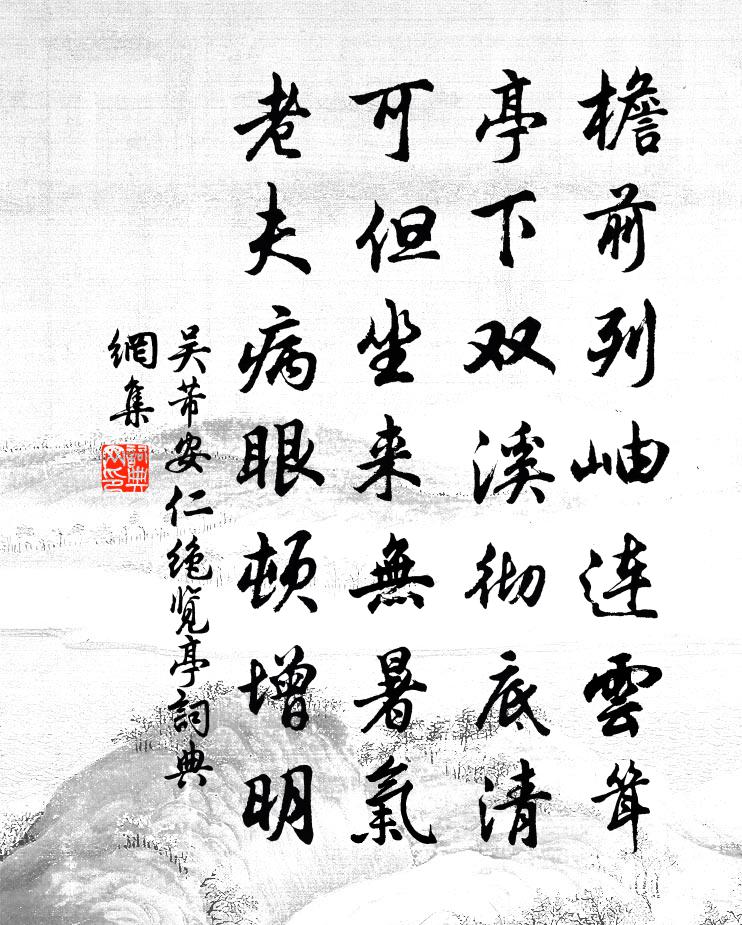 檐前列岫连雲耸
亭下双溪彻底清
可但坐来無暑氣
老夫病眼顿增明
吴芾安仁绝览亭詞典
網集
詞典
网印